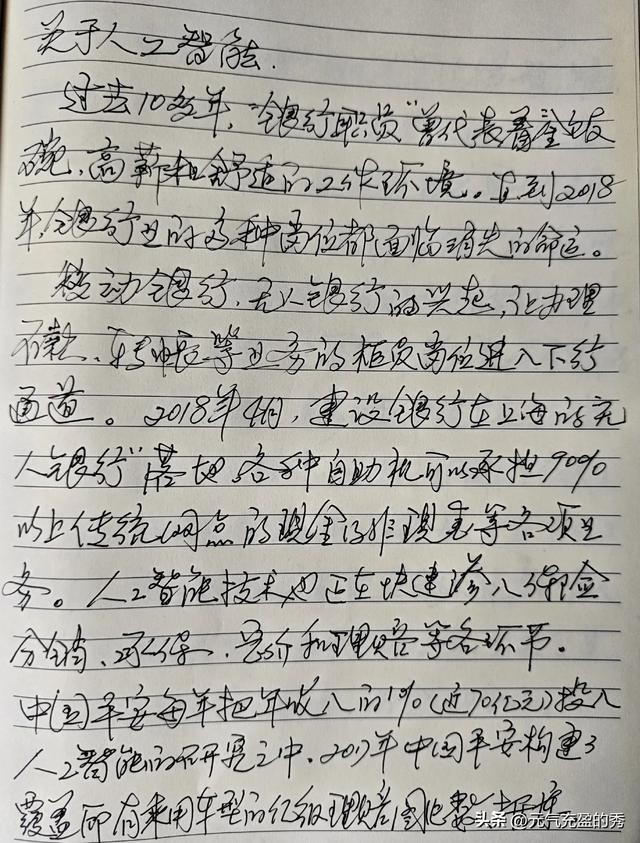 关于人工智能.
过去10多年，“银行职员”曾代表着金饭
碗、高薪和舒适的工作环境。直到2018
年银行业的多种岗位都面临消失的命运。
移动银行，无人银行的兴起，让办理
存款、转帐等业务的柜员岗位进入下行
通道。2018年4月，建设银行在上海的无
人银行”落地，各种自助机可以承担90%
以上传统网点的现金及非现金等各项业
务。人工智能技术也正在快速渗入保险
分销、承保、定价和理赔等各环节。
中国平安每年把年收入的1%(近70亿元)投入
人工智能的研究之中，2017年中国平安构建了
覆盖所有乘用车型的亿级理赔图
头条 @元气充盈的秀